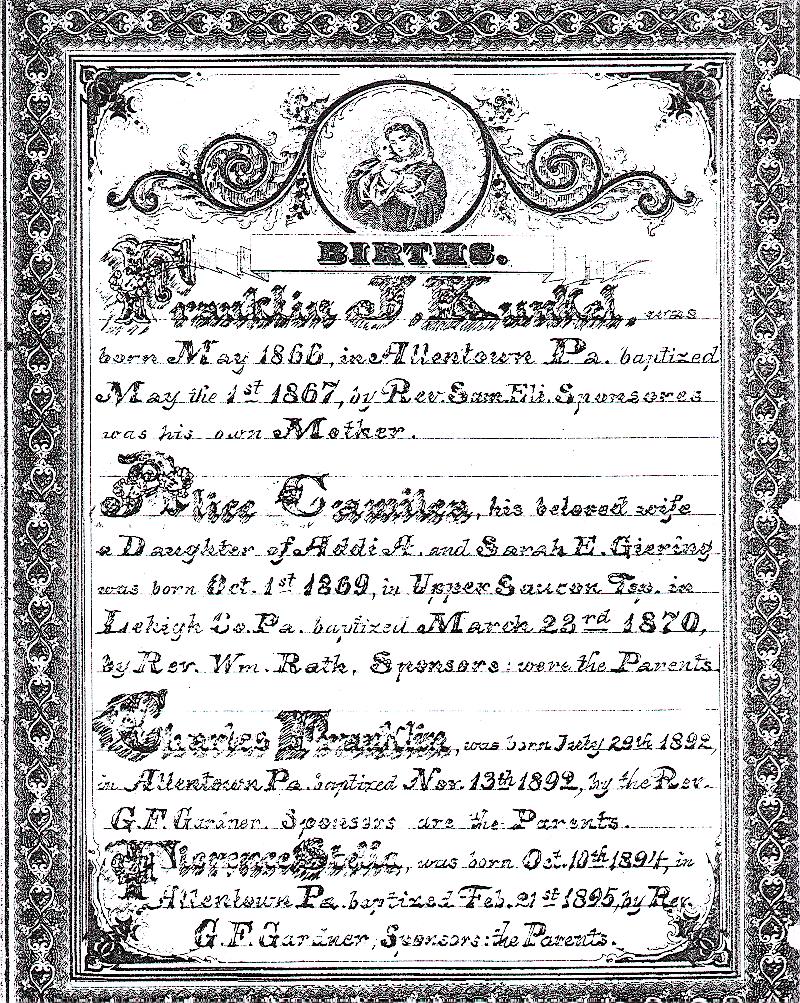 BIRTHS.
Franklin J. Kunkel, was
born May 1866, in Allentown Pa. baptized
May the 1st 1867, by Rev. Sam Eli. Sponsores
was his own Mother.
Alice Camilea, his beloved wife
a Daughter of Addi A. and Sarah E. Giering
was born Oct. 1st 1869, in Upper Saucon Tsp. in
Lehigh Co. Pa. baptized March 23rd 1870,
by Rev. Wm. Rath, Sponsors: were the Parents.
Charles Franklin, was born July 29th 1892,
in Allentown Pa. baptized Nov. 13th 1892, by the Rev.
G. F. Gardner. Sponsers are the Parents.
Florence Stella, was born Oct. 10th 1894, in
Allentown Pa. baptized Feb. 21st 1895, by Rev.
G. F. Gardner, Sponsers: the Parents.